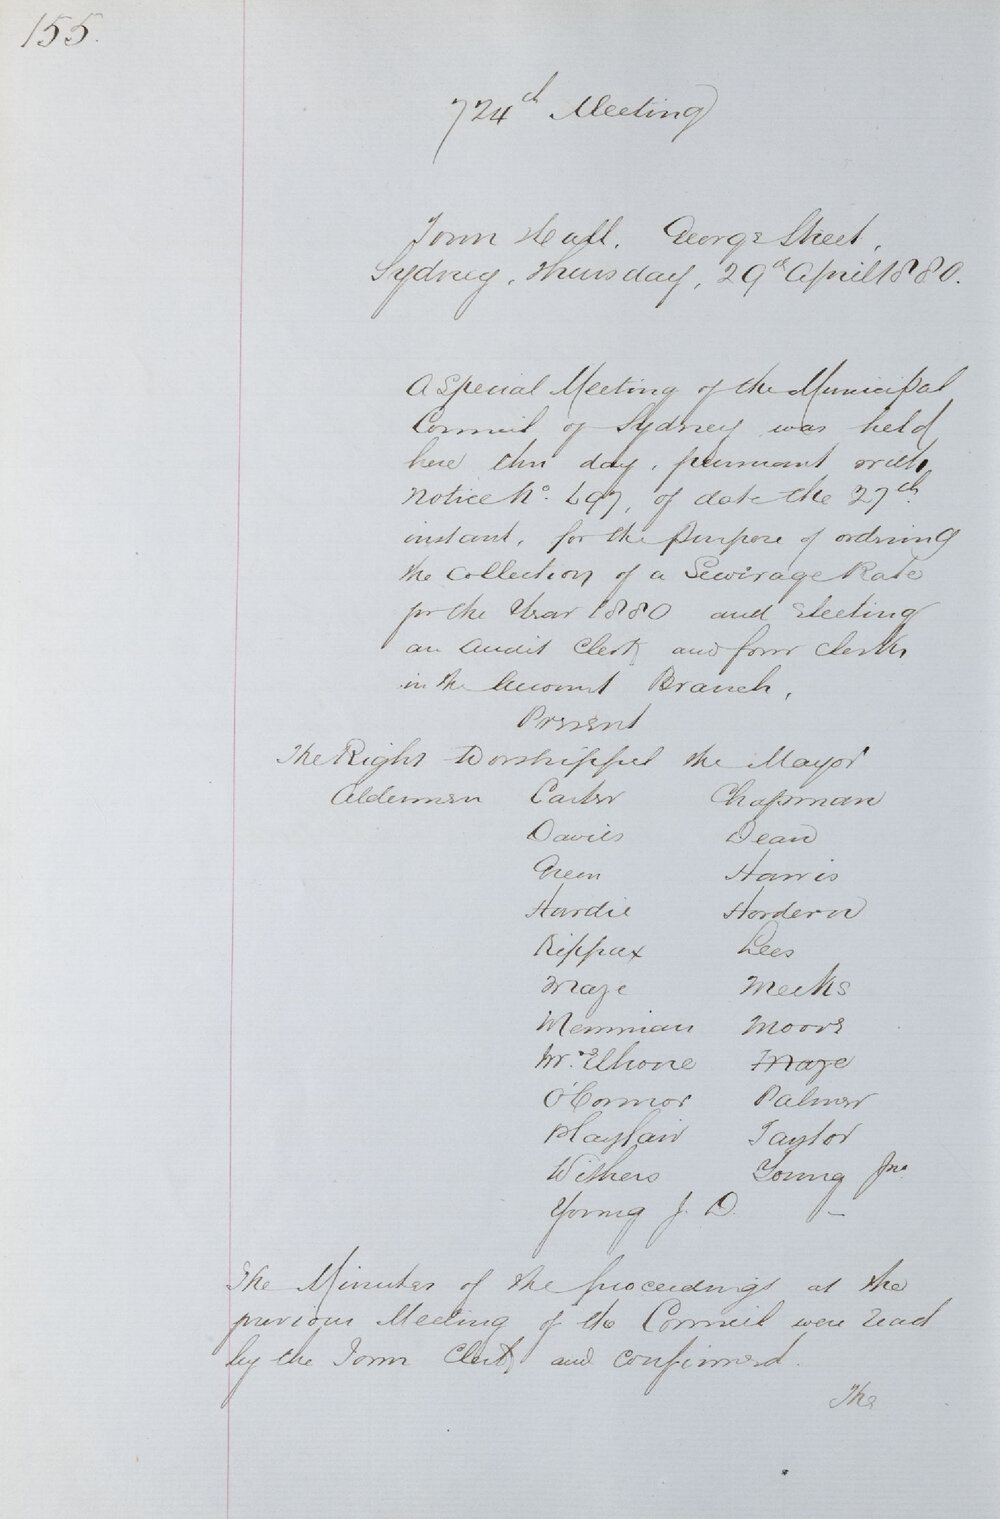 155.
724th Meeting
Town Hall, George Street,
Sydney, Thursday, 29th April 1880.
A Special Meeting of the Municipal
Council of Sydney was held
here this day, pursuant with
Notice No. 697, of date the 27th
instant, for the purpose of ordering
the collection of a Sewerage Rate
for the Year 1880 and Electing
an Audit Clerk and four Clerks
in the Account Branch,
Present
The Right Worshipful the Mayor
Aldermen Carter Chapman
Davies Dean
Green Harris
Hardie Hordern
Kippax Lees
Maze Meeks
Merriman Moore
McElhone Maze
O'Connor Palmer
Playfair Taylor
Withers Young Jno.
Young J. D. —
The Minutes of the proceedings at the
previous Meeting of the Council were read
by the Town Clerk and confirmed.
The